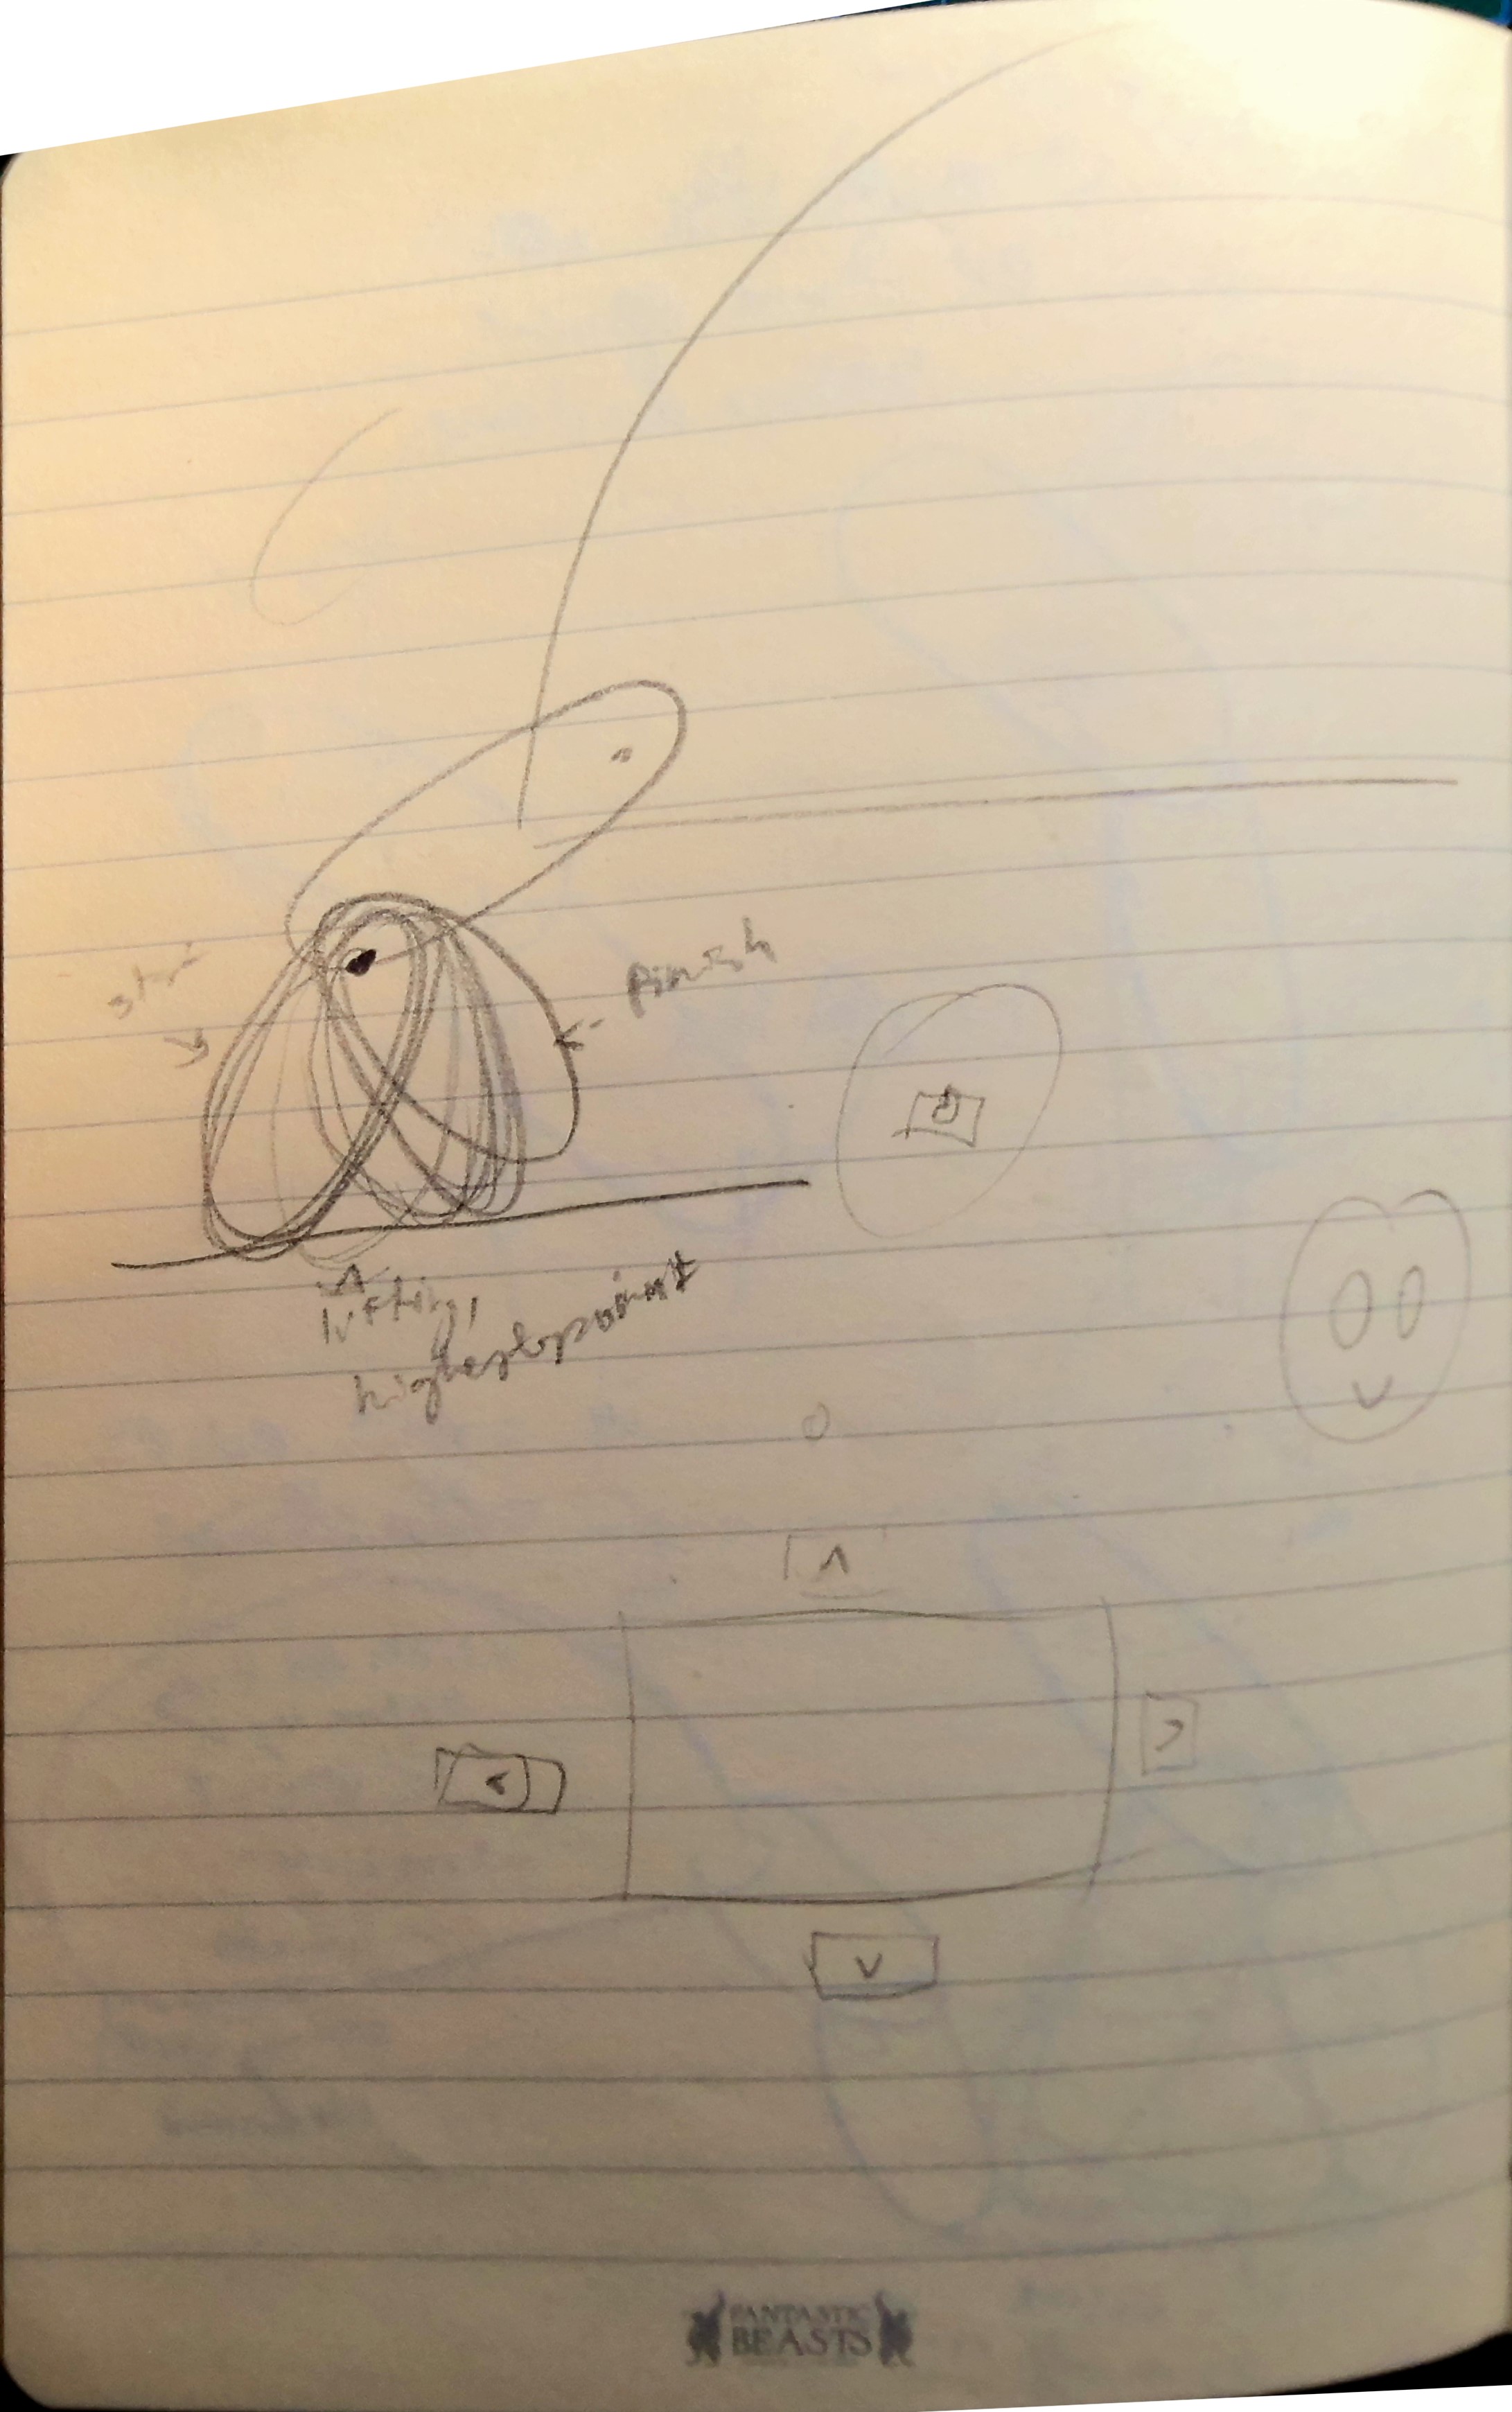 start
finish
lifting,
highest point
FANTASTIC
BEASTS